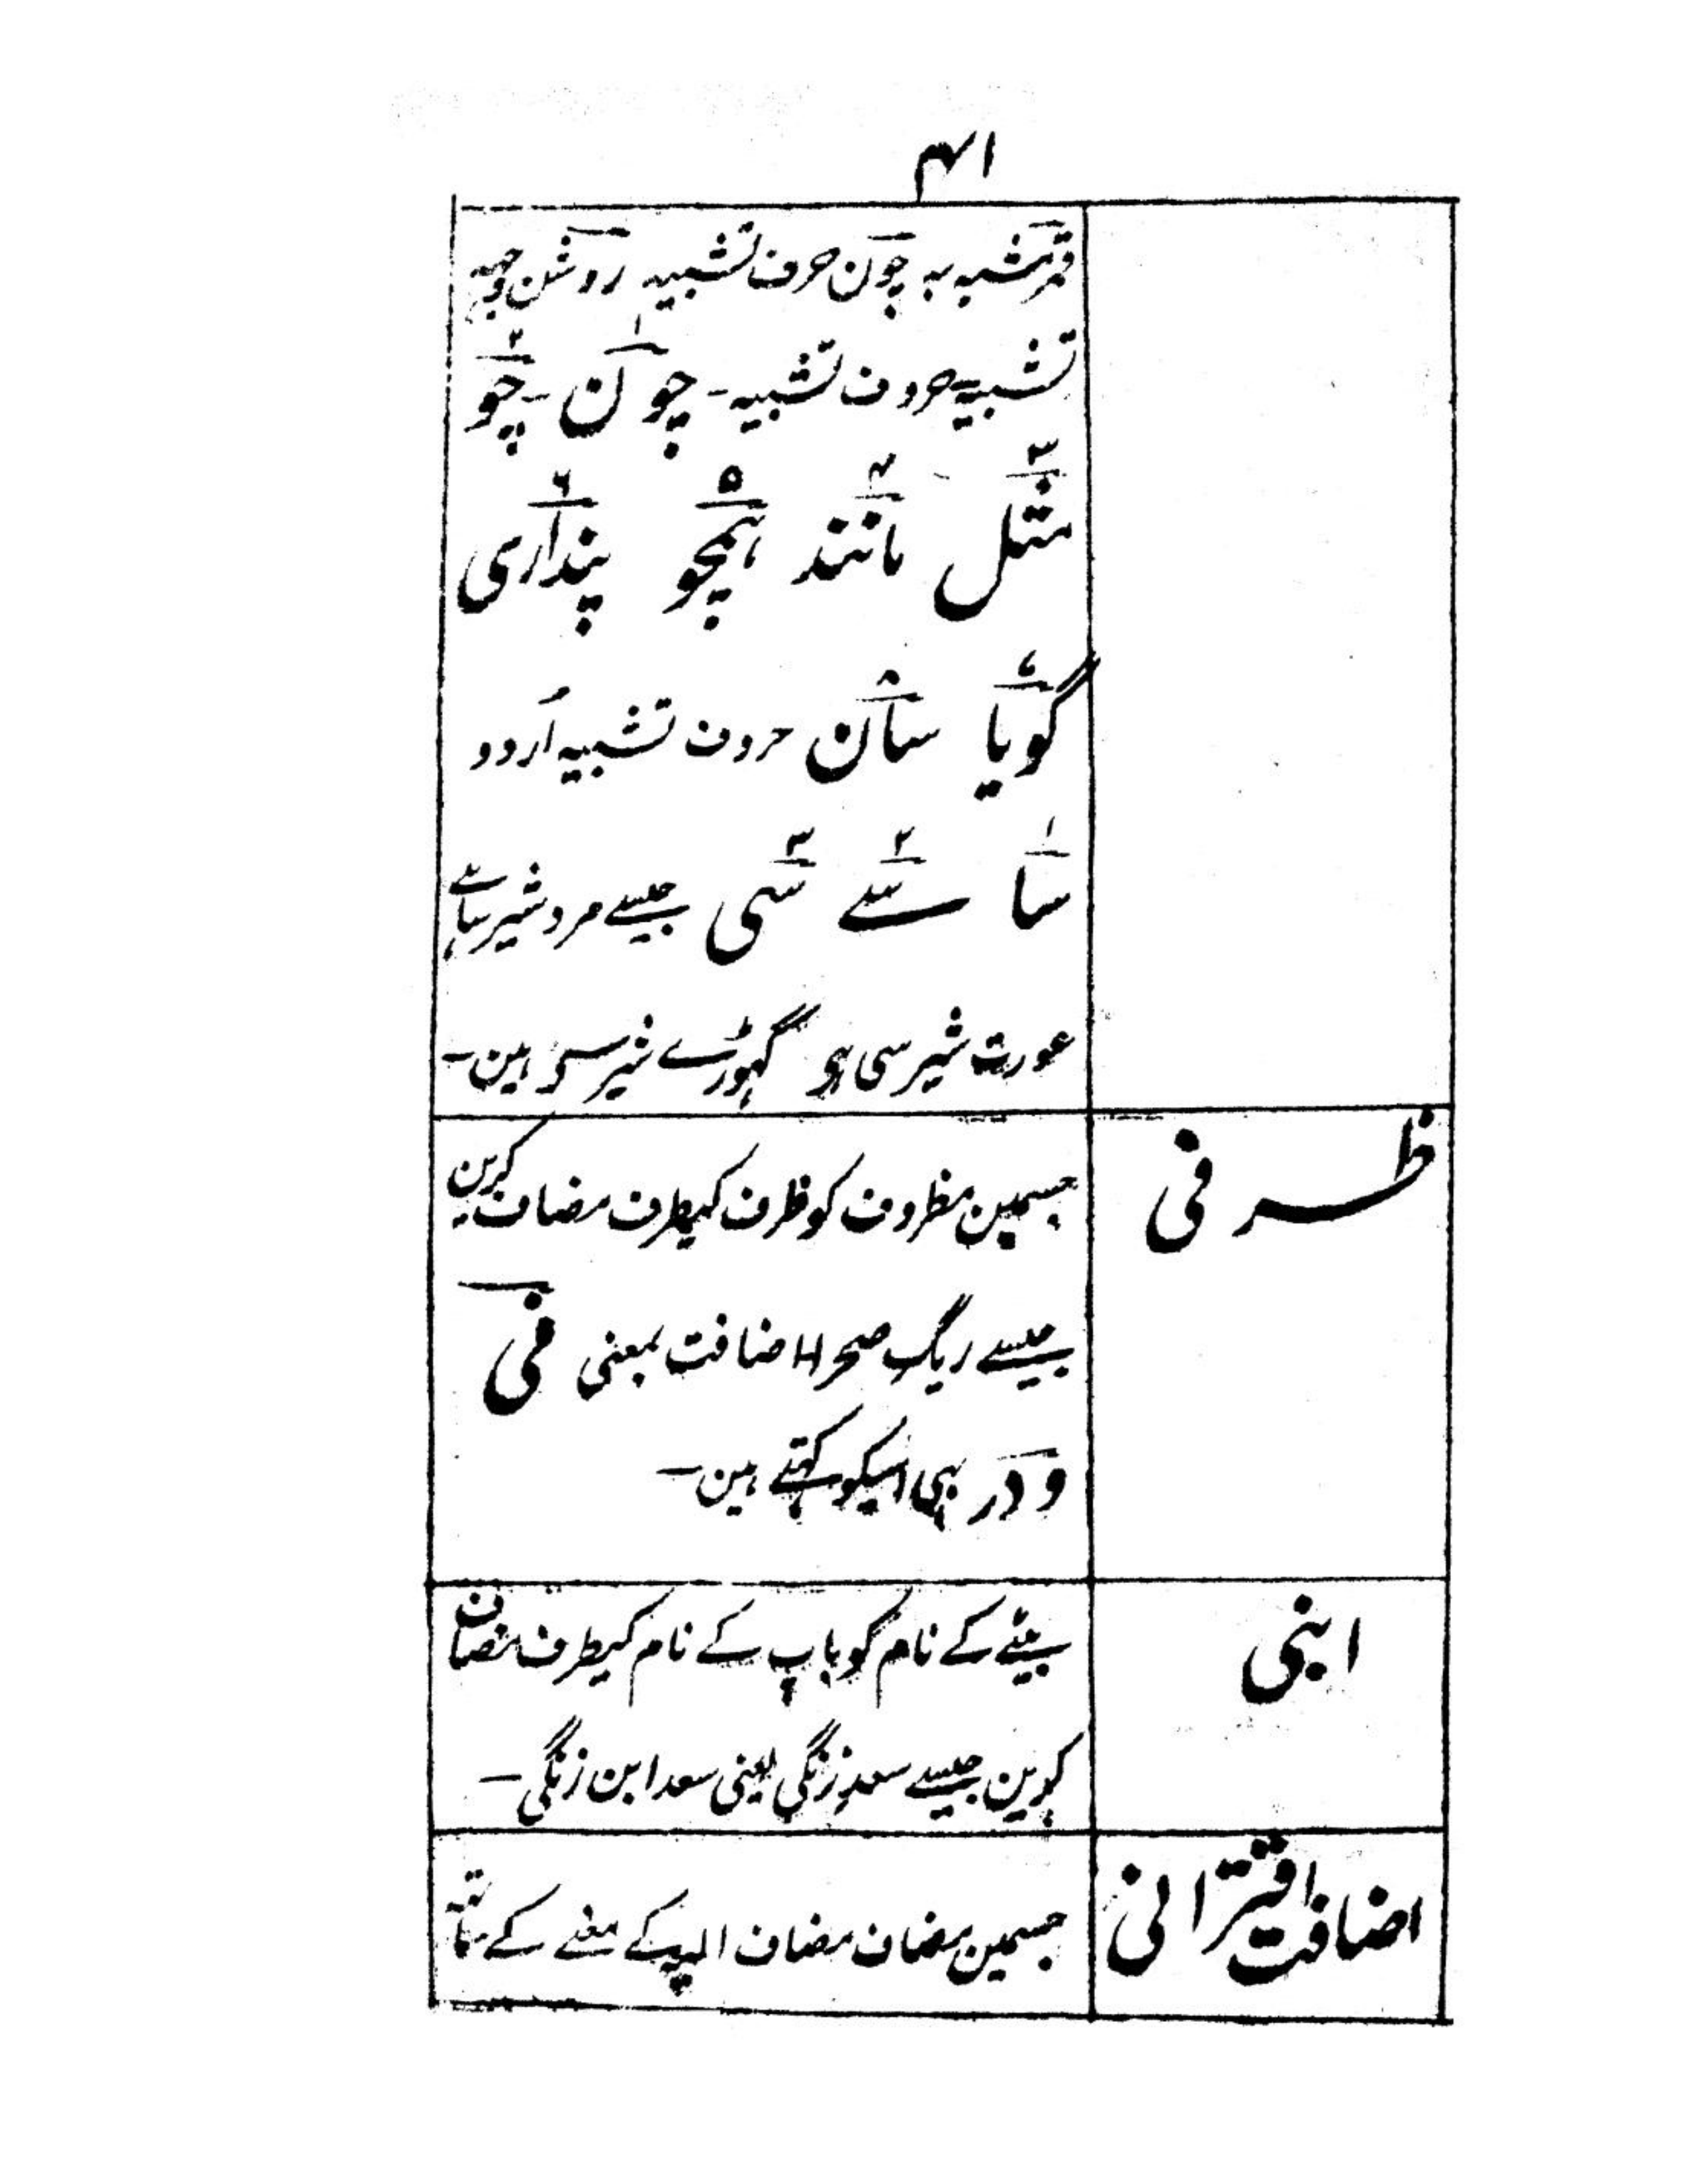 ۴۱
قمر مشبہ بہ چون حرف تشبیہ روشن وجہ
تشبیہ حروف تشبیہ۔ چون ۔ چو
مثل مانند ہمچو پنداری
گویا سان حروف تشبیہ اُردو
سا سے سی جیسے مرد شیر سا ہے
عورت شیر سی ہی گہوڑے شیر سے ہین۔
ظرفی
جسمین مظروف کو ظرف کیطرف مضاف کرین
جیسے ریگِ صحرا اضافت بمعنی فی
و در بہی اسیکو کہتے ہین۔
ابنی
بیٹے کے نام کو باپ کے نام کیطرف مضاف
کرین جیسے سعدِ زنگی یعنی سعد ابن زنگی۔
اضافت اقترانی
جسمین مضاف مضاف الیہ کے معنے کے ساتھ